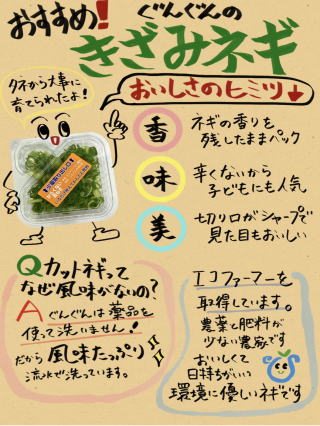 おすすめ!
ぐんぐんの
きざみネギ
おいしさのヒミツ↓
タネから大事に
育てられたよ!
香
ネギの香りを
残したままパック
味
辛くないから
子どもにも人気
美
切り口がシャープで
見た目もおいしい
Qカットネギって
なぜ風味がないの?
Aぐんぐんは薬品を
使って洗いません!
だから風味たっぷり
流水で洗っています。
エコファーマーを
取得しています。
農薬と肥料が
少ない農家です
おいしくて
日持ちがいい
環境に優しいネギです